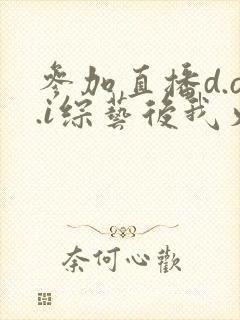 參加直播d.o
.i綜藝後我火
奈何心歡